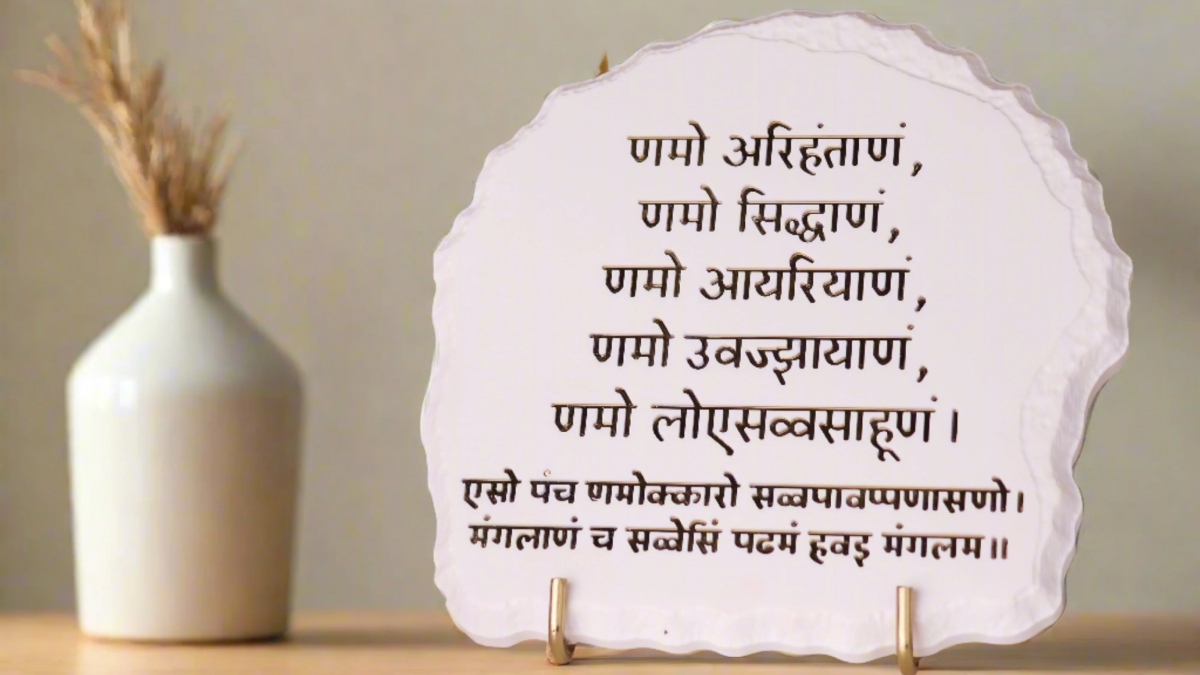 णमो अरिहंताणं,
णमो सिद्धाणं,
णमो आयरियाणं,
णमो उवज्झायाणं,
णमो लोएसव्वसाहूणं।
एसो पंच णमोक्कारो सव्वपावप्पणासणो।
मंगलाणं च सव्वेसिं पढमं हवइ मंगलम॥